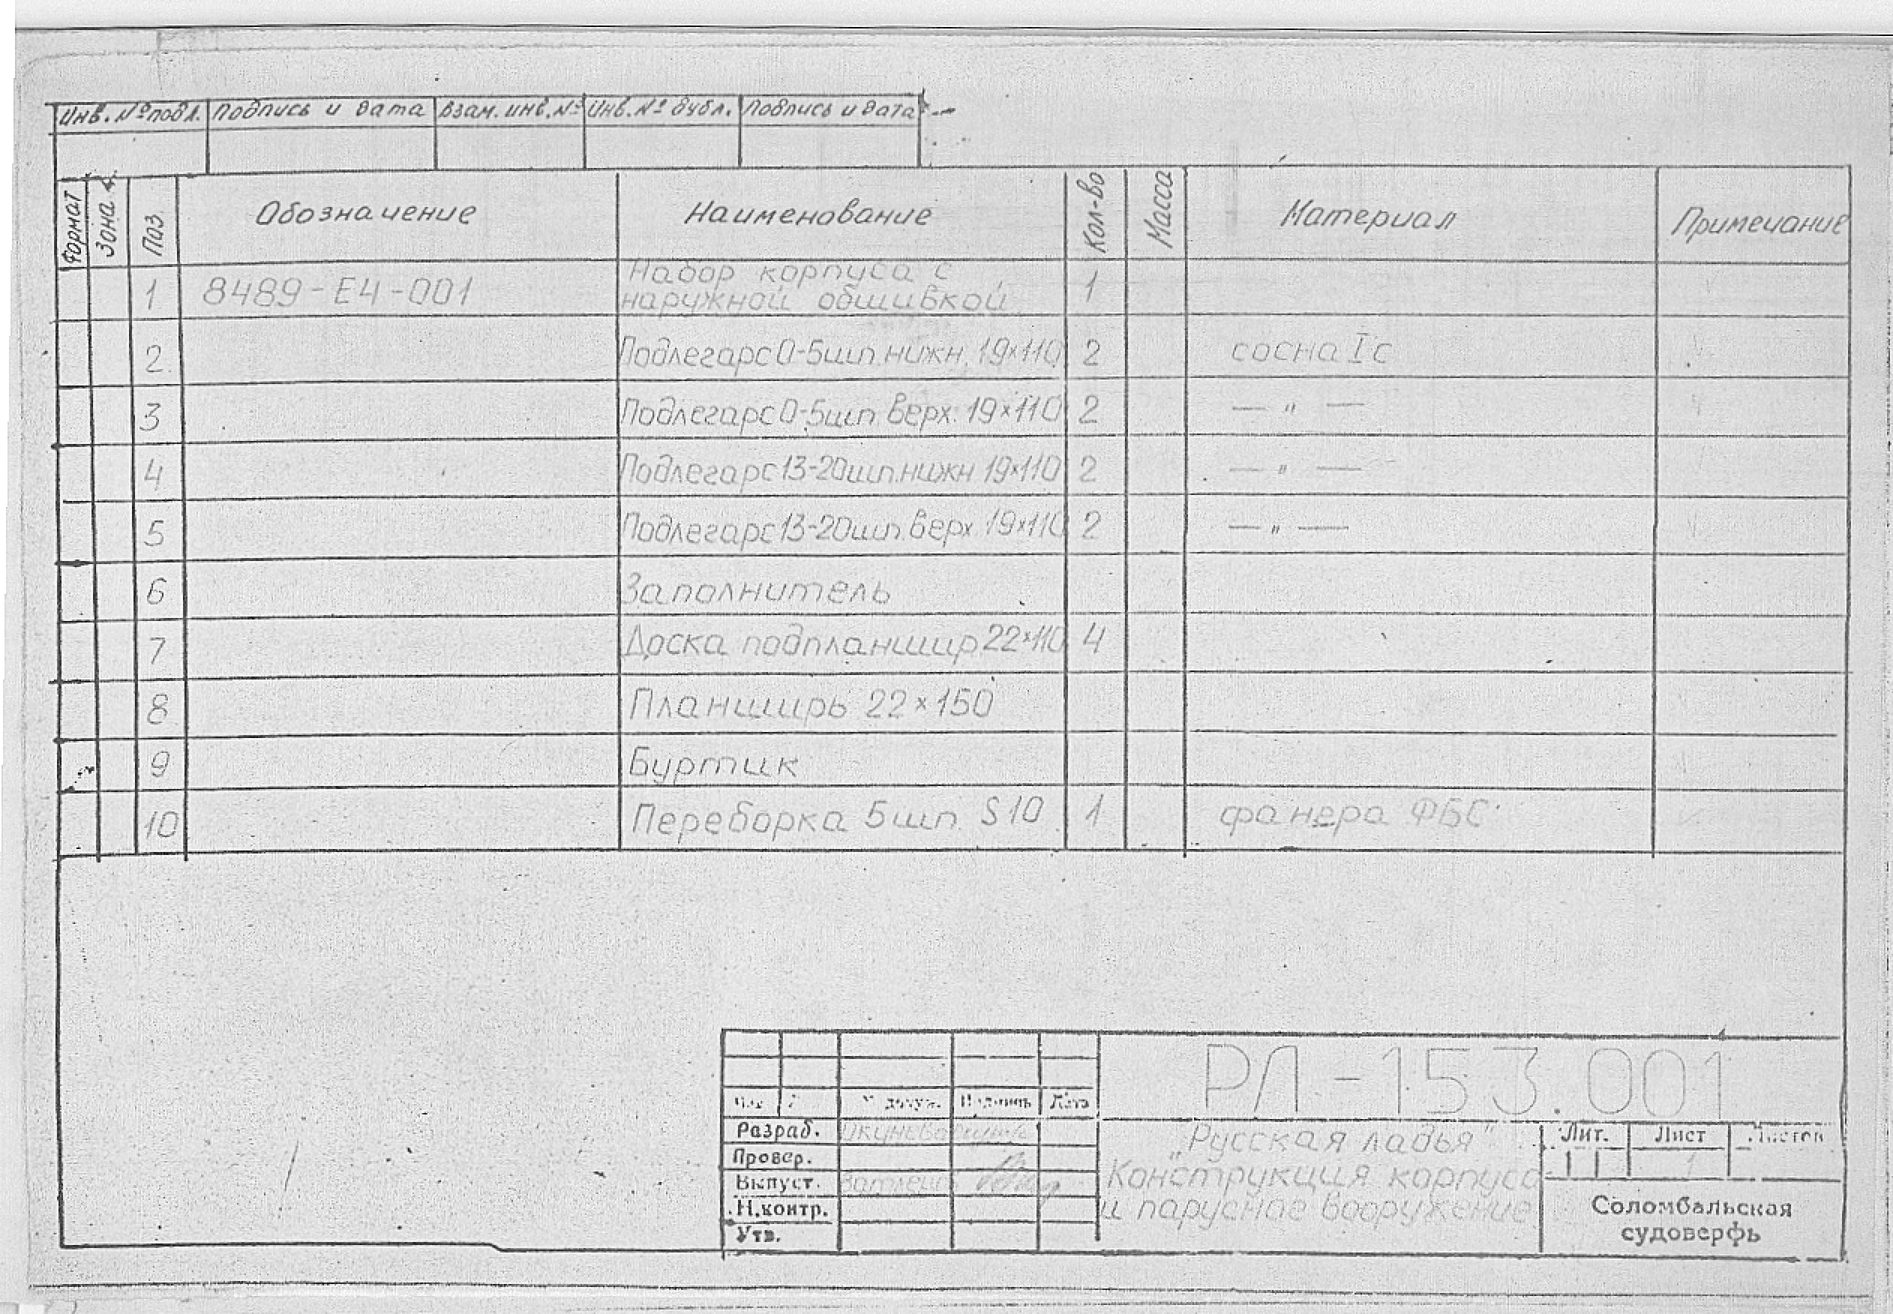 Инв. № подл. Подпись и дата Взам. инв. № Инв. № дубл. Подпись и дата
Формат Зона Поз. Обозначение Наименование Кол-во Масса Материал Примечание
1 8489-Е4-001 Набор корпуса с наружной обшивкой 1
2 Подлегарс 0-5шп. нижн. 19×110 2 сосна Iс
3 Подлегарс 0-5шп. верх. 19×110 2 — " —
4 Подлегарс 13-20шп. нижн 19×110 2 — " —
5 Подлегарс 13-20шп. верх. 19×110 2 — " —
6 Заполнитель
7 Доска подпланшир 22×110 4
8 Планширь 22×150
9 Буртик
10 Переборка 5шп. S10 1 фанера ФБС
РЛ-153.001
докум. Подпись Дата
Разраб.
Провер.
Выпуст.
Н.контр.
Утв.
"Русская ладья"
Конструкция корпуса
и парусное вооружение
Лит. Лист Листов
1
Соломбальская
судоверфь